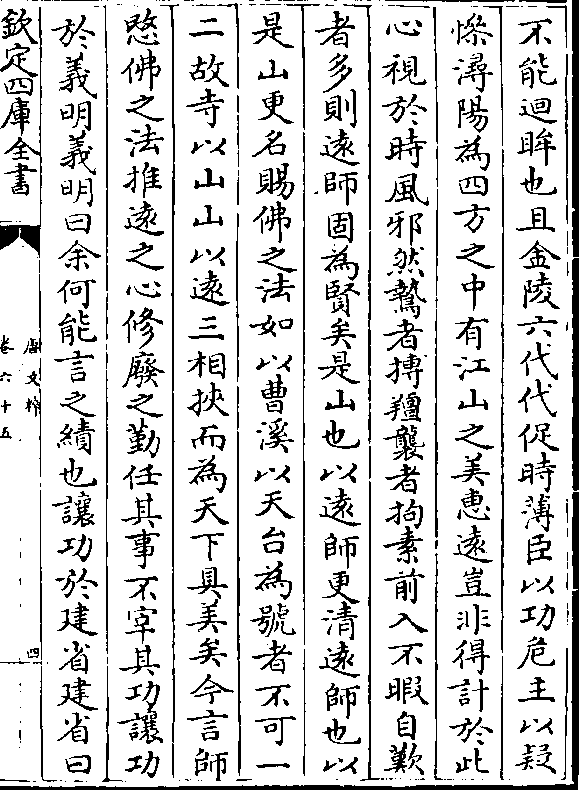 不能迴眸也且金陵六代代促時薄臣以功危主以疑
慘潯陽為四方之中有江山之美惠遠豈非得計於此
心視於時風邪然鷙者搏羶襲者拘素前入不暇自歎
者多則遠師固為賢矣是山也以遠師更清遠師也以
是山更名賜佛之法如以曹溪以天台為號者不可一
二故寺以山山以遠三相挾而為天下具美矣今言師
愍佛之法推遠之心修廢之勤任其事不宰其功讓功
於義明義明曰余何能言之績也讓功於建省建省曰
欽定四庫全書
唐文粹
卷六十五
四